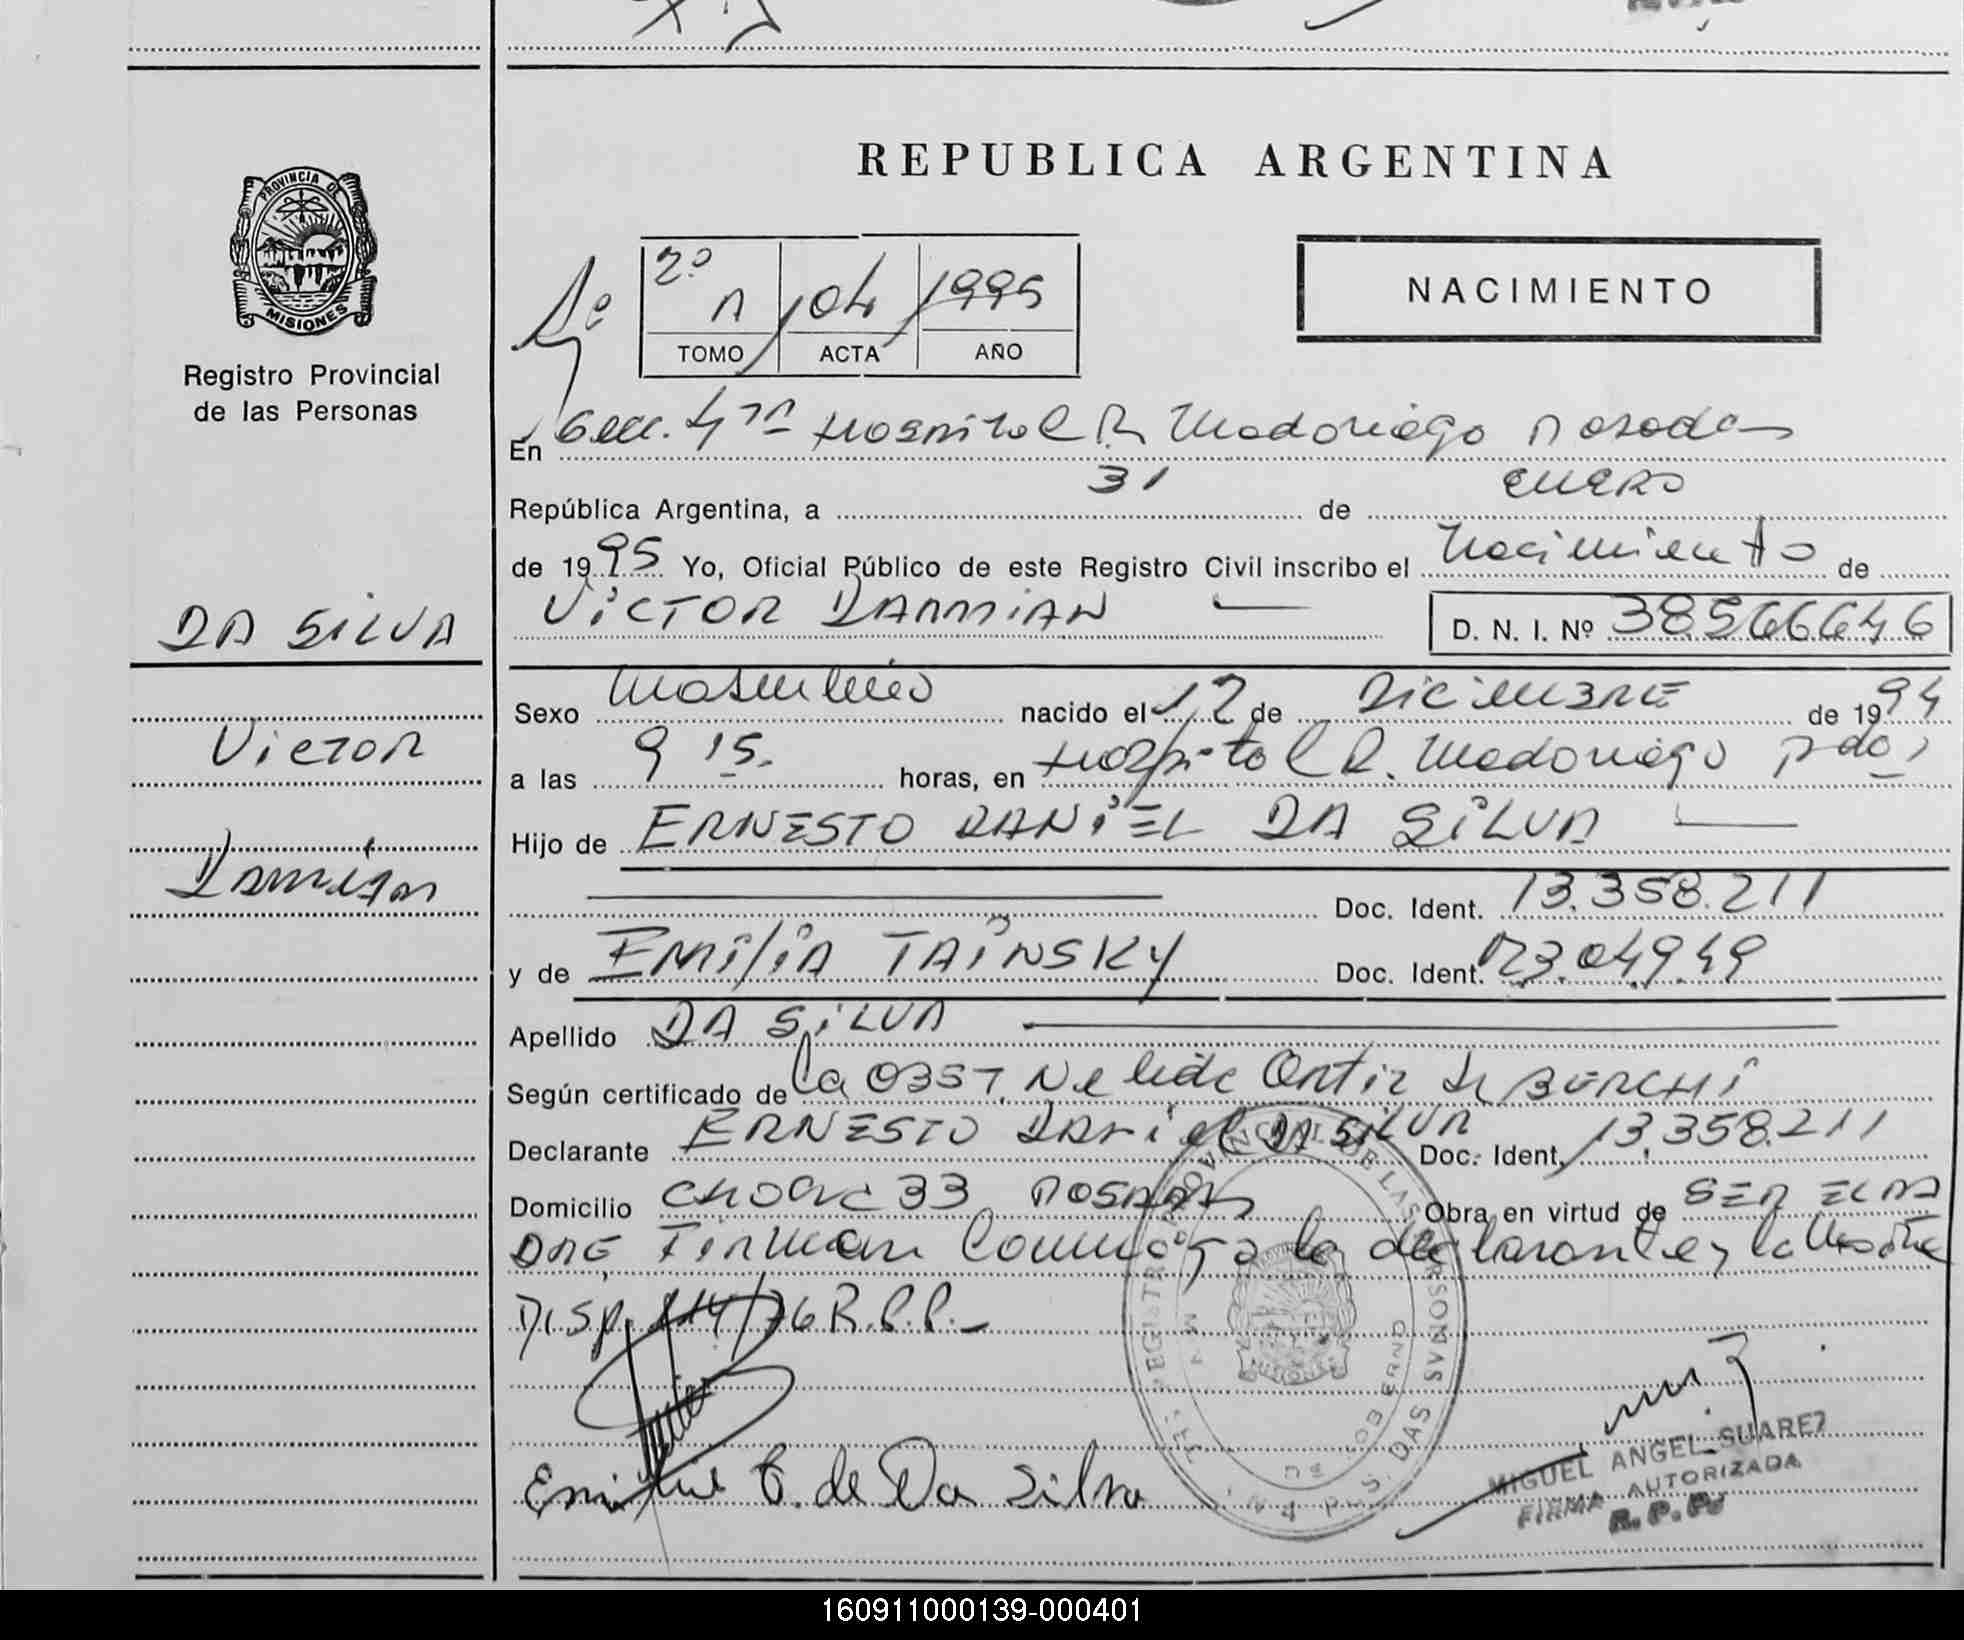 REPUBLICA ARGENTINA
PROVINCIA DE
MISIONES
Registro Provincial
de las Personas
2º
104 1995
TOMO ACTA AÑO
NACIMIENTO
En Secc. 4ta Hospital R. Madariaga Posadas
República Argentina, a 31 de enero
de 1995 Yo, Oficial Público de este Registro Civil inscribo el Nacimiento de
VICTOR DAMIAN D. N. I. Nº 38566646
DA SILVA
Victor
Damian
Sexo Masculino nacido el 12 de Diciembre de 1994
a las 9 15. horas, en Hospital R. Madariaga Pdas
Hijo de ERNESTO DANIEL DA SILVA
Doc. Ident. 13.358.211
y de EMILIA TAINSKY Doc. Ident.
Apellido DA SILVA
Según certificado de la OBST. Nelide Ortiz de
Declarante ERNESTO Daniel DA SILVA Doc. Ident. 13.358.211
Domicilio 33 POSADAS Obra en virtud de SER EL PA
DRE Firman Conmigo la declarante y la Madre
DISP. 114/76 R.P.P.-
Emilia T. de Da Silva
REGISTRO PROVINCIAL DE LAS PERSONAS
MIGUEL ANGEL SUAREZ
FIRMA AUTORIZADA
R.P.P.
160911000139-000401